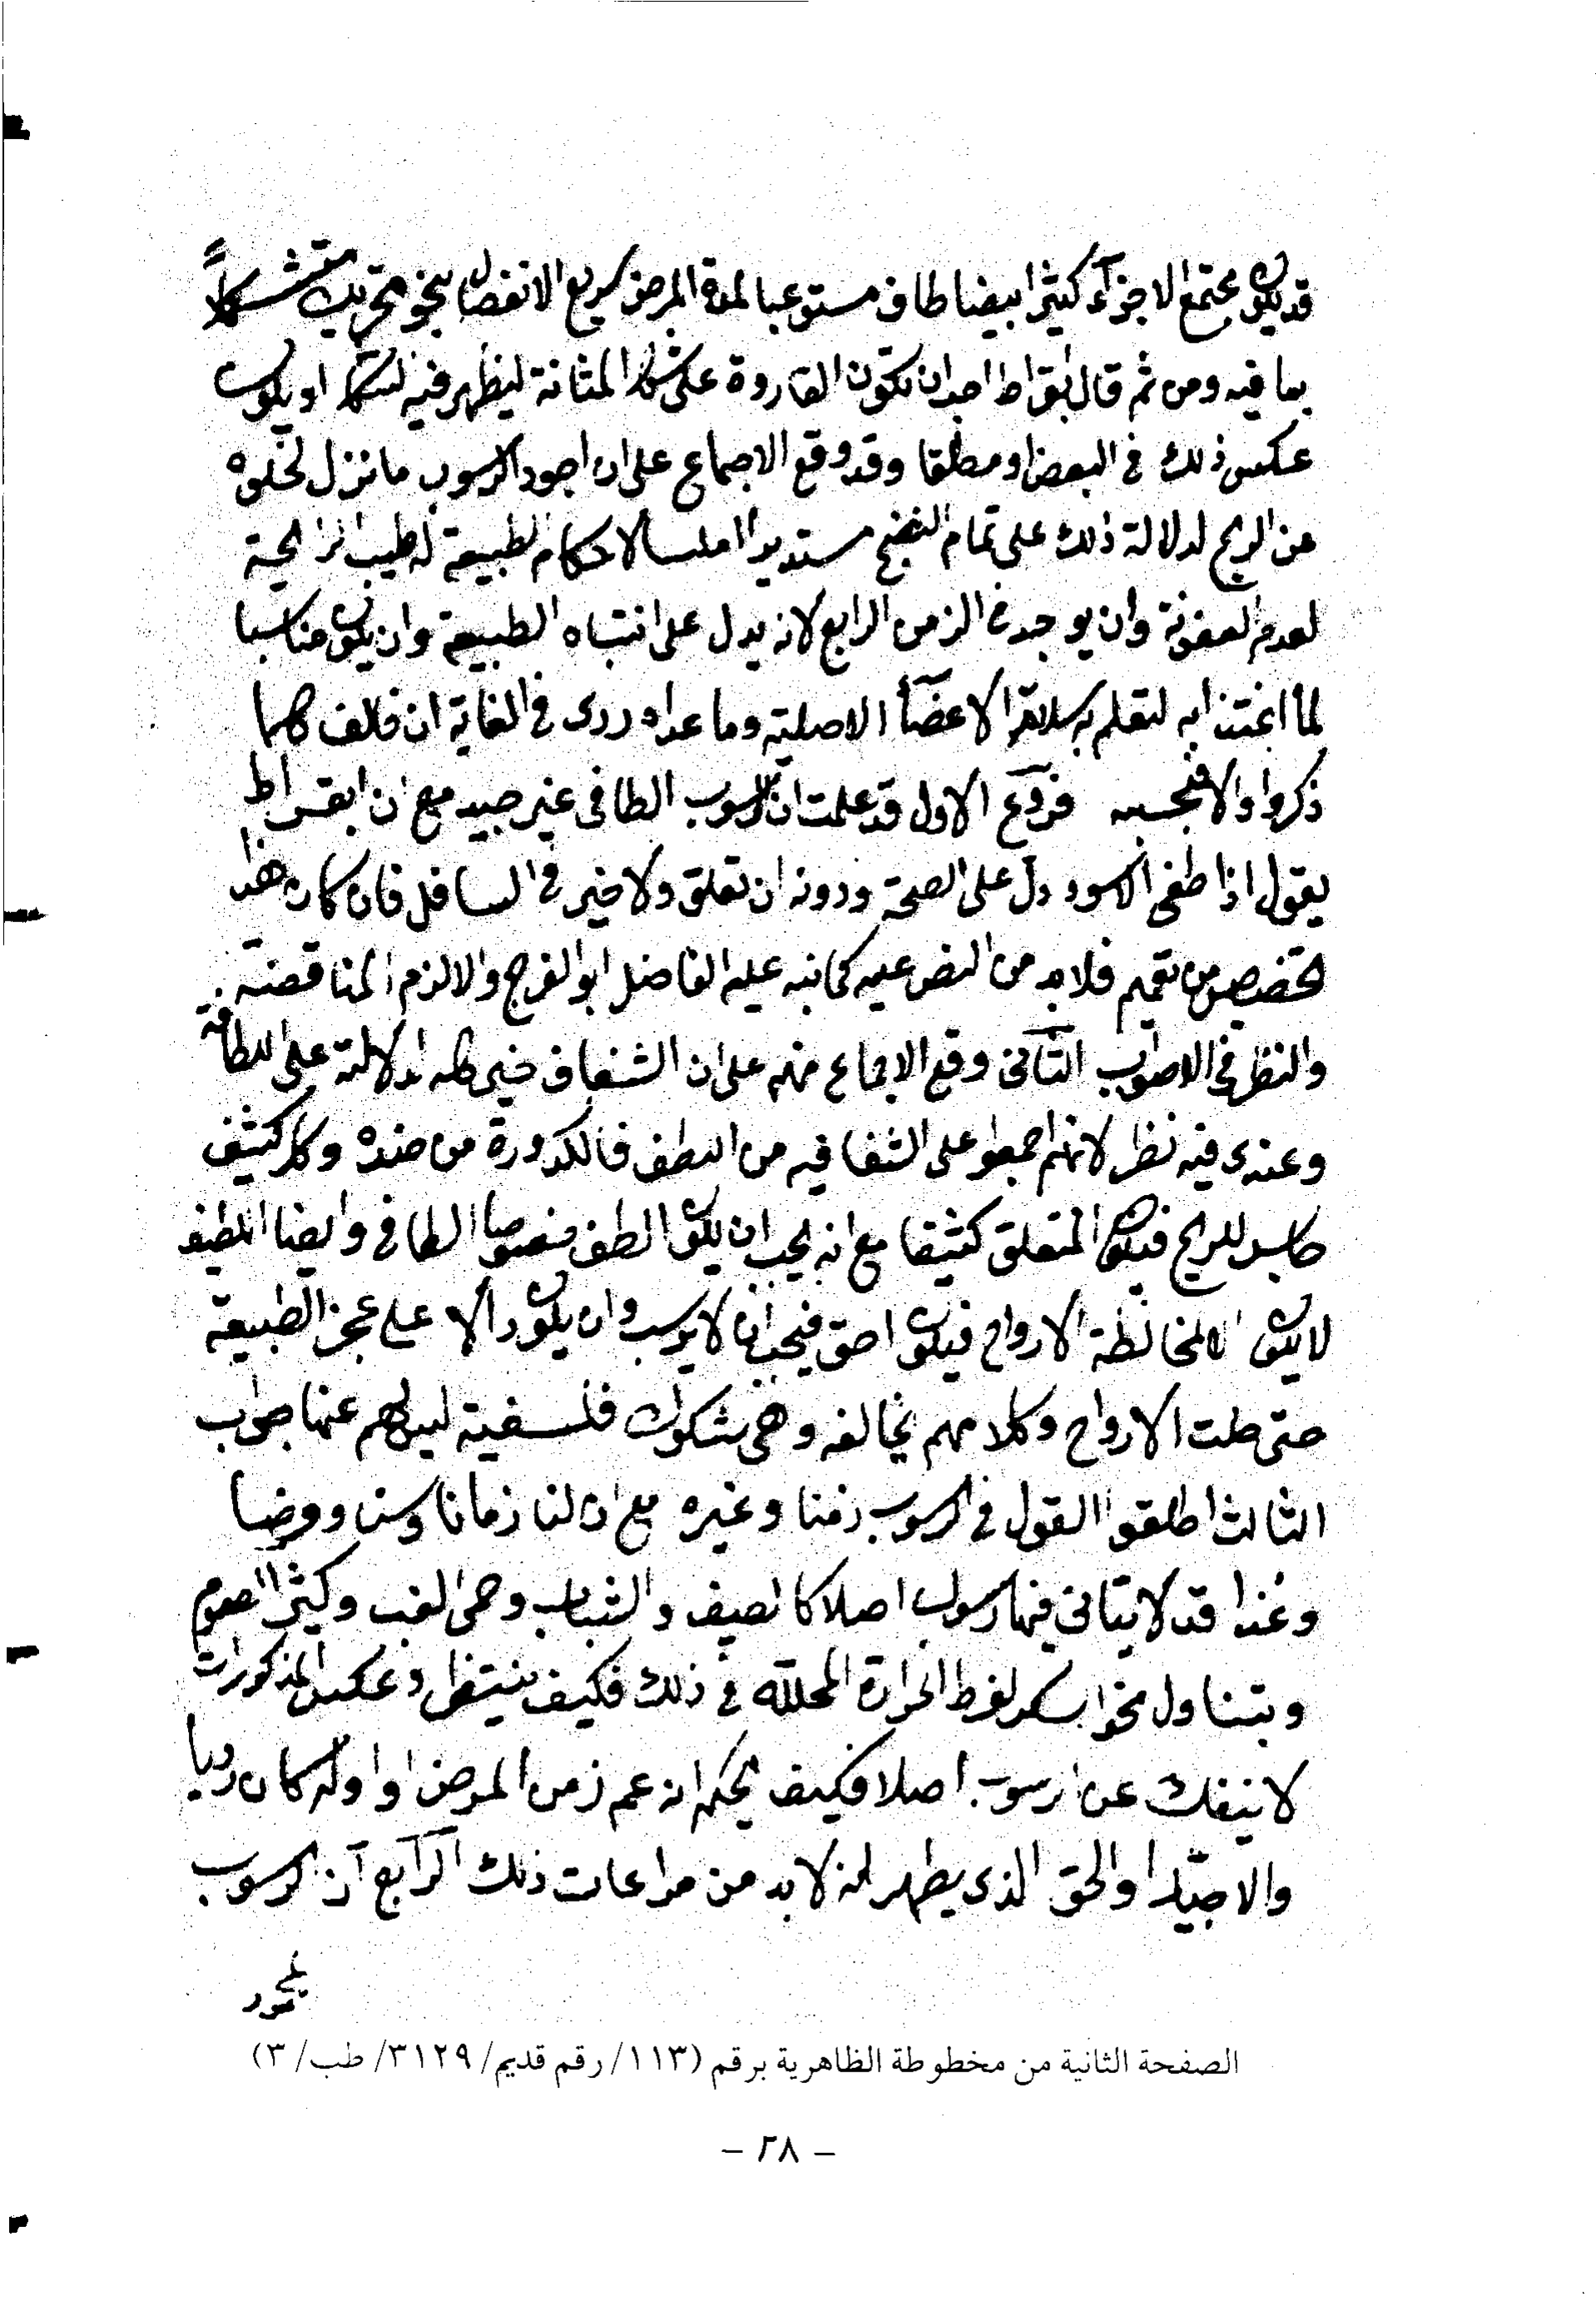 قد يكون مجتمع الاجزآء كثيرا ابيضا طاف مستوعبا لمدة المرض سريع الانفصال بنحو تحريك متشكلاً
بما فيه ومن ثم قال بقراط احب ان تكون القارورة على شكل المثانة ليظهر فيه لشكل او يكون
عكس ذلك في البعض او مطلقا وقد وقع الاجماع على ان اجود الرسوب ما نزل لخلوه
عن الريح لدلالة ذلك على تمام النضج مستديرا املسا لاحكام الطبيعة له طيب الرائحية
لعدم العفونة وان يوجد في الزمن الرابع لانه يدل على انتباه الطبيعة وان يكون مناسبا
لما اغتذا به لتعلم به سلامة الاعضآء الاصلية وما عداه ردى في الغاية ان خالف كلما
ذكروا والا فبحسبه فروع الاول قد علمت ان الرسوب الطافى غير جيد مع ان ابقراط
يقول اذا طفى الاسود دل على الصحة ودونه ان تعلق ولا خير في السافل فان كان هذا
تخصيص من تعميم فلا بد من النص عليه كما نبه عليه الفاضل ابو الفرج والا لزم المناقضة
والنظر في الاصوب الثآنى وقع الاجماع منهم على ان الشفاف خير كله لدلالته على اللطافة
وعندى فيه نظر لانهم اجمعوا على الشفافيه من اللطف فالكدورة من ضده وكل كثيف
حابس للريح فيكون المتعلق كثيفا مع انه يجب ان يكون الطف خصوصا الطافى وايضا اللطيف
لا يكون الا لمخالطة الارواح فيكون احق فيجب ان لا يرسب وان يكون دالا على عجز الطبيعة
حتى حلت الارواح وكلامهم يخالفه وهي شكوك فلسفية ليس لهم عنها جواب
الثالث اطلقوا القول في الرسوب زمنا وغيره مع ان لنا زمانا وسنا ومرضا
وغذا قد لا يتاتى فيها رسوب اصلا كالصيف والشباب وحمى الغب وكثير الصوم
وبتناول نحو السكر لفرط الحرارة المحللة في ذلك فكيف ينتظر وعكس المذكورات
لا ينفك عن الرسوب اصلا فكيف يحكم انه عم زمن المرض او اوله كان رديا
والا جيدا والحق الذى يظهر انه لا بد من مراعات ذلك الرآبع ان الرسوب
الصفحة الثانية من مخطوطة الظاهرية برقم (١١٣/ رقم قديم/ ٣١٢٩/ طب/ ٣)
– ٢٨ –